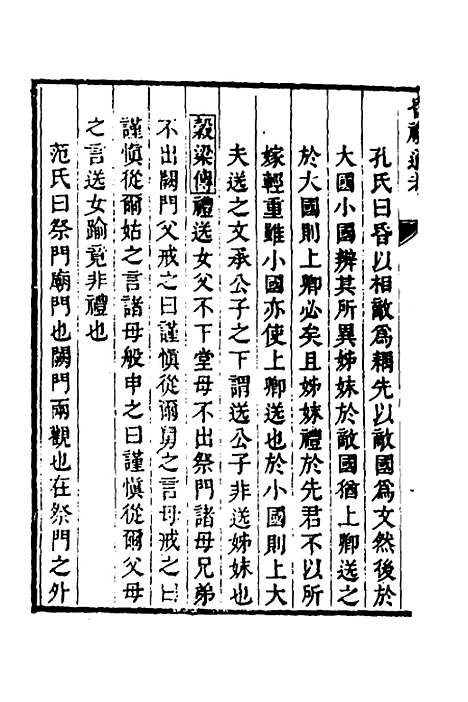 昏禮通考
孔氏曰昏以相敵爲耦先以敵國爲文然後於
大國小國辨其所異姊妹於敵國猶上卿送之
於大國則上卿必矣且姊妹禮於先君不以所
嫁輕重雖小國亦使上卿送也於小國則上大
夫送之文承公子之下謂送公子非送姊妹也
穀梁傳禮送女父不下堂母不出祭門諸母兄弟
不出闕門父戒之曰謹愼從爾舅之言母戒之曰
謹愼從爾姑之言諸母般申之曰謹愼從爾父母
之言送女踰竟非禮也
范氏曰祭門廟門也闕門兩觀也在祭門之外